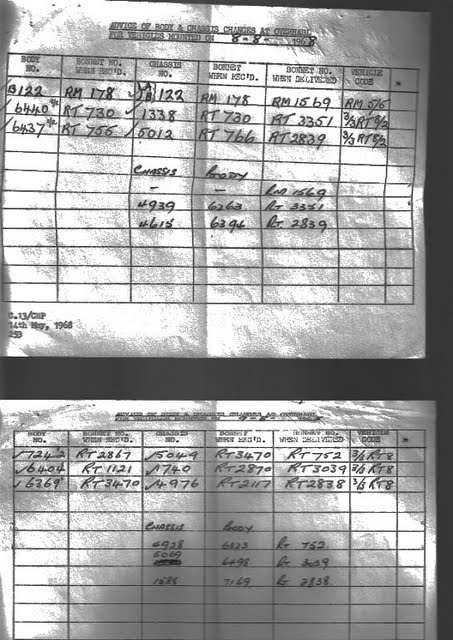 ADVICE OF BODY & CHASSIS CHANGES AT OVERHAUL
FOR VEHICLES MOUNTED ON 8-8- 1968
BODY NO. BONNET NO. WHEN REC'D. CHASSIS NO. BONNET WHEN REC'D. BONNET NO. WHEN DELIVERED VEHICLE CODE
B122 RM 178 122 RM 178 RM 1569 RM 5/6
6440 RT 730 1338 RT 730 RT 3351 3/3 RT 8/2
6437 RT 755 5012 RT 766 RT 2839 3/3 RT 8/2
CHASSIS BODY
- - RM 1569
4939 6263 RT 3351
4615 6394 RT 2839
C.13/CHP
14th May, 1968
253
ADVICE OF BODY & CHASSIS CHANGES AT OVERHAUL
FOR VEHICLES MOUNTED ON
BODY NO. BONNET NO. WHEN REC'D. CHASSIS NO. BONNET WHEN REC'D. BONNET NO. WHEN DELIVERED VEHICLE CODE
7242 RT 2867 5049 RT 3470 RT 752 3/3 RT8
6404 RT 1121 1740 RT 2870 RT 3039 3/3 RT8
6369 RT 3470 4976 RT 2117 RT 2838 3/3 RT8
CHASSIS BODY
4928 6323 RT 752
5009 6498 RT 3039
1688 7169 RT 2838